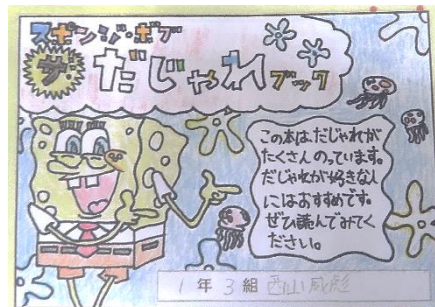 スポンジ・ボブ
ザ・だじゃれブック
この本は、だじゃれが
たくさんのっています。
だじゃれが好きな人
にはおすすめです。
ぜひ読んでみてく
ださい。
1年3組